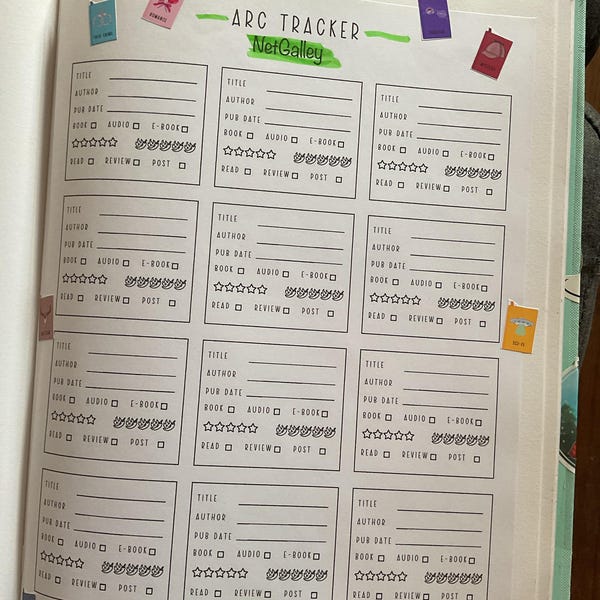 TRUE CRIME
ROMANCE
ARC TRACKER
NetGalley
MYSTERY
TITLE
AUTHOR
PUB DATE
BOOK AUDIO E-BOOK
READ REVIEW POST
TITLE
AUTHOR
PUB DATE
BOOK AUDIO E-BOOK
READ REVIEW POST
TITLE
AUTHOR
PUB DATE
BOOK AUDIO E-BOOK
READ REVIEW POST
TITLE
AUTHOR
PUB DATE
BOOK AUDIO E-BOOK
READ REVIEW POST
TITLE
AUTHOR
PUB DATE
BOOK AUDIO E-BOOK
READ REVIEW POST
TITLE
AUTHOR
PUB DATE
BOOK AUDIO E-BOOK
READ REVIEW POST
SCI-FI
TITLE
AUTHOR
PUB DATE
BOOK AUDIO E-BOOK
READ REVIEW POST
TITLE
AUTHOR
PUB DATE
BOOK AUDIO E-BOOK
READ REVIEW POST
TITLE
AUTHOR
PUB DATE
BOOK AUDIO E-BOOK
READ REVIEW POST
TITLE
AUTHOR
PUB DATE
BOOK AUDIO E-BOOK
READ REVIEW POST
TITLE
AUTHOR
PUB DATE
BOOK AUDIO E-BOOK
READ REVIEW POST
TITLE
AUTHOR
PUB DATE
BOOK AUDIO E-BOOK
READ REVIEW POST